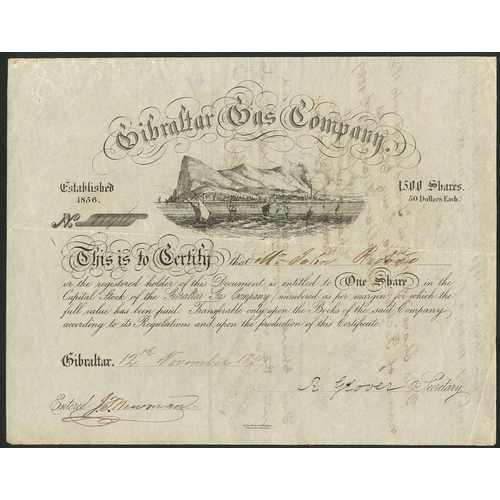 Gibraltar Gas Company.
Established
1856.
1500 Shares.
50 Dollars Each.
No.
This is to Certify that Mr. John
or the registered holder of this Document is entitled to One Share in the
Capital Stock of the Gibraltar Gas Company numbered as per margin for which the
full value has been paid. Transferable only upon the Books of the said Company
according to its Regulations and upon the production of this Certificate.
Gibraltar. 12th November
R Glover Secretary
Entered J. Newman